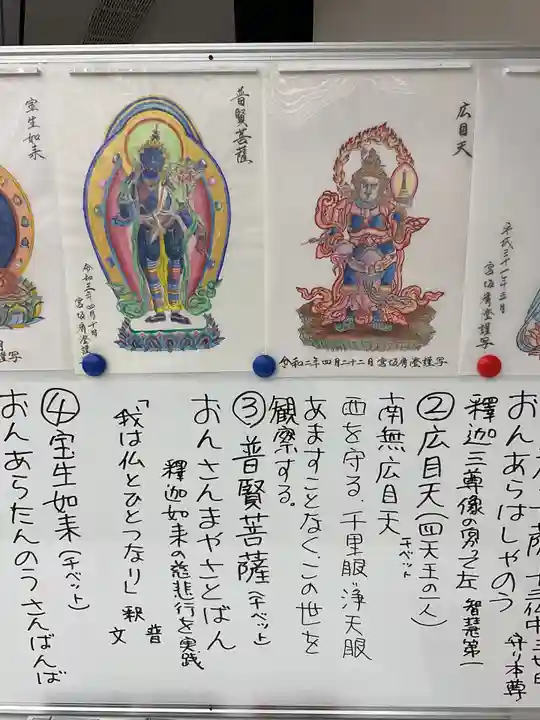 広目天
令和二年四月二十二日 宮坂宥澄謹写
普賢菩薩
令和三年四月十日
宮坂宥澄謹写
宝生如来
謹写
平成三十一年三月
宮坂宥澄謹写
おんあらはしゃのう
守り本尊
釋迦三尊像の
左 智慧第一
②広目天(四天王の一人)
チベット
南無広目天
西を守る、千里眼"浄天眼
あますことなく、この世を
観察する。
③普賢菩薩(チベット)
おんさんまやさとばん
釋迦如来の慈悲行を実践
「我は仏とひとつなり」釈
普
文
④宝生如来(チベット)
おんあらたんのうさんばんば